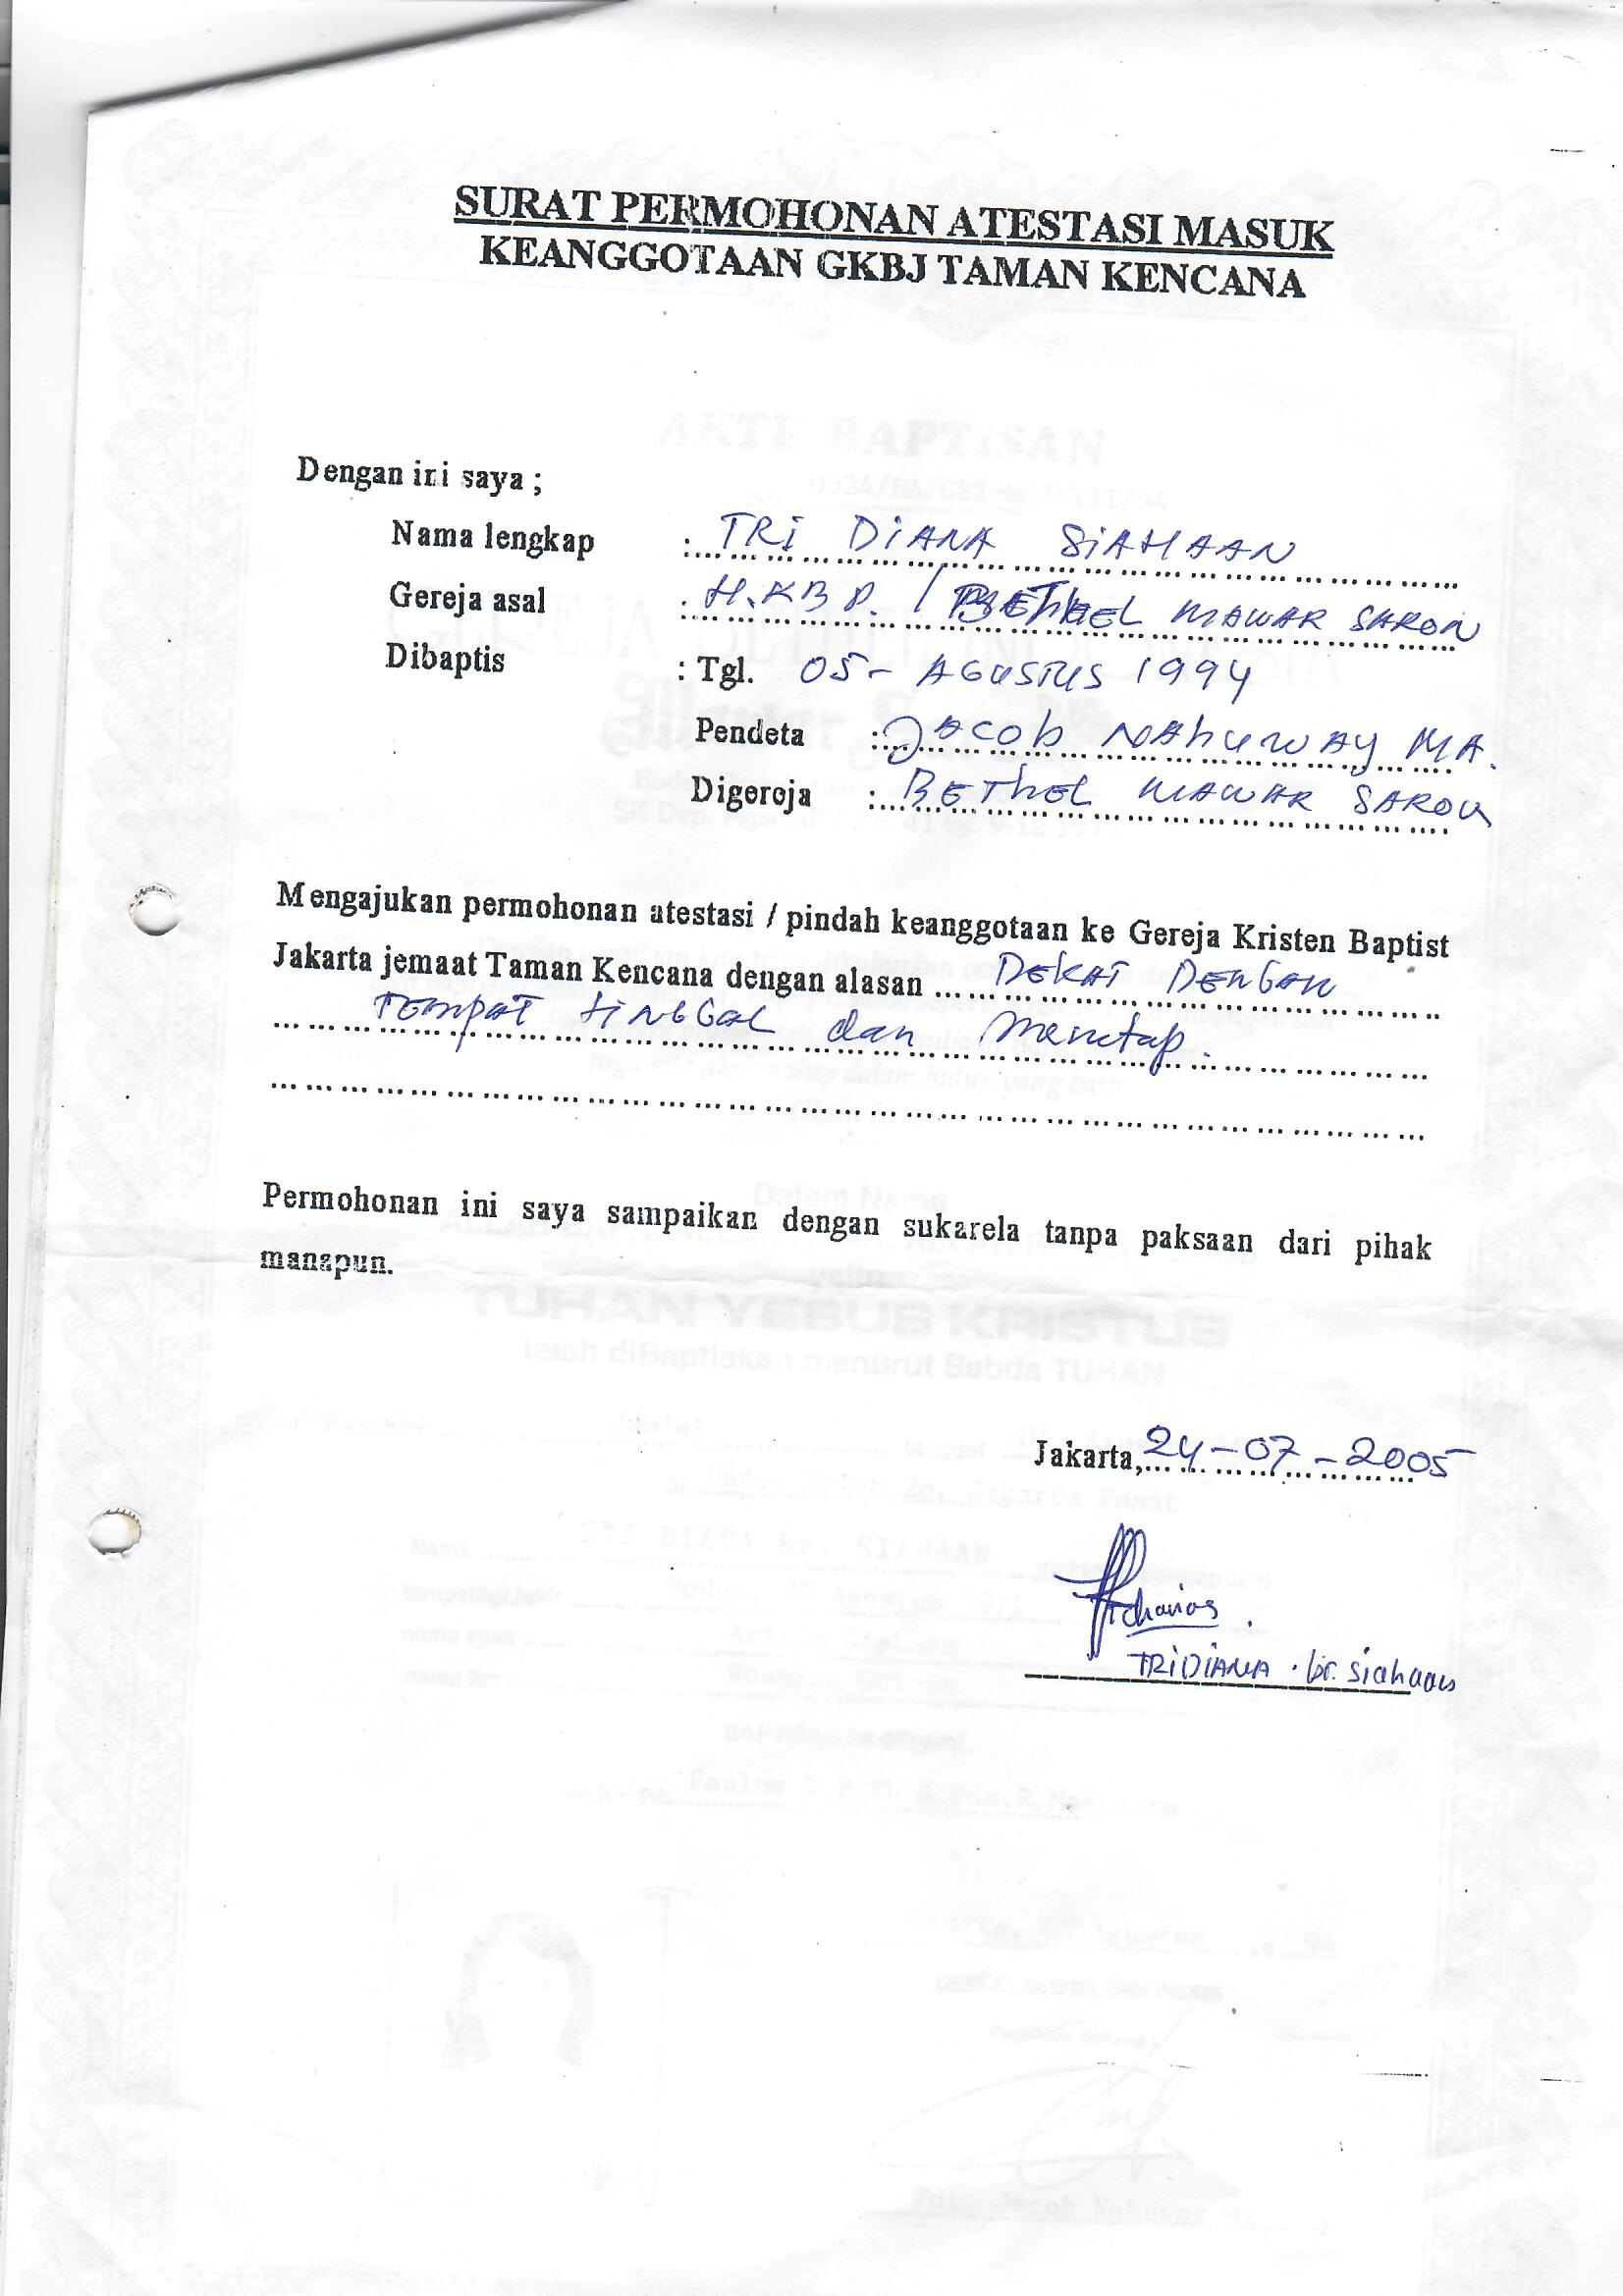 SURAT PERMOHONAN ATESTASI MASUK
KEANGGOTAAN GKBJ TAMAN KENCANA
Dengan ini saya ;
Nama lengkap : TRI DIANA SIAHAAN
Gereja asal : H.KBP. / BETHEL MAWAR SARON
Dibaptis : Tgl. 05 - AGUSTUS 1994
Pendeta : Jacob Nahuway MA.
Digereja : BEThEL MAWAR SARON
Mengajukan permohonan atestasi / pindah keanggotaan ke Gereja Kristen Baptist
Jakarta jemaat Taman Kencana dengan alasan ... DEKAT DENGAN
TEMPAT tINGGAL dan Menetap.
Permohonan ini saya sampaikan dengan sukarela tanpa paksaan dari pihak
manapun.
Jakarta, 24-07-2005
TRIDIANA . br. Siahaan